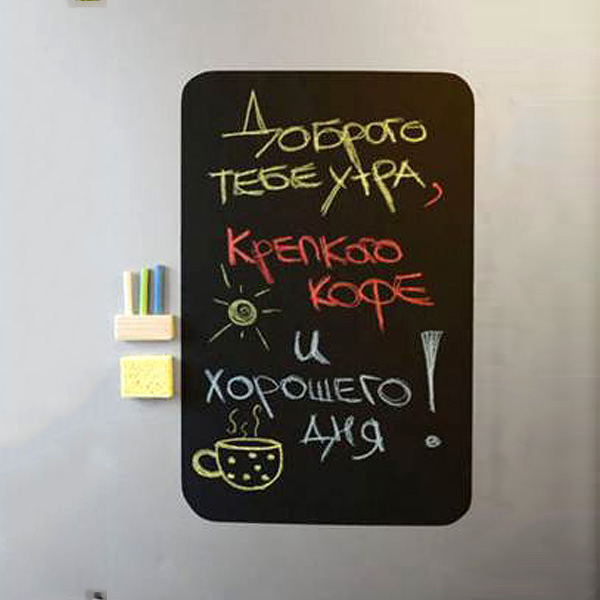 Доброго
тебе утра,
Крепкого
кофе
и
хорошего!
дня